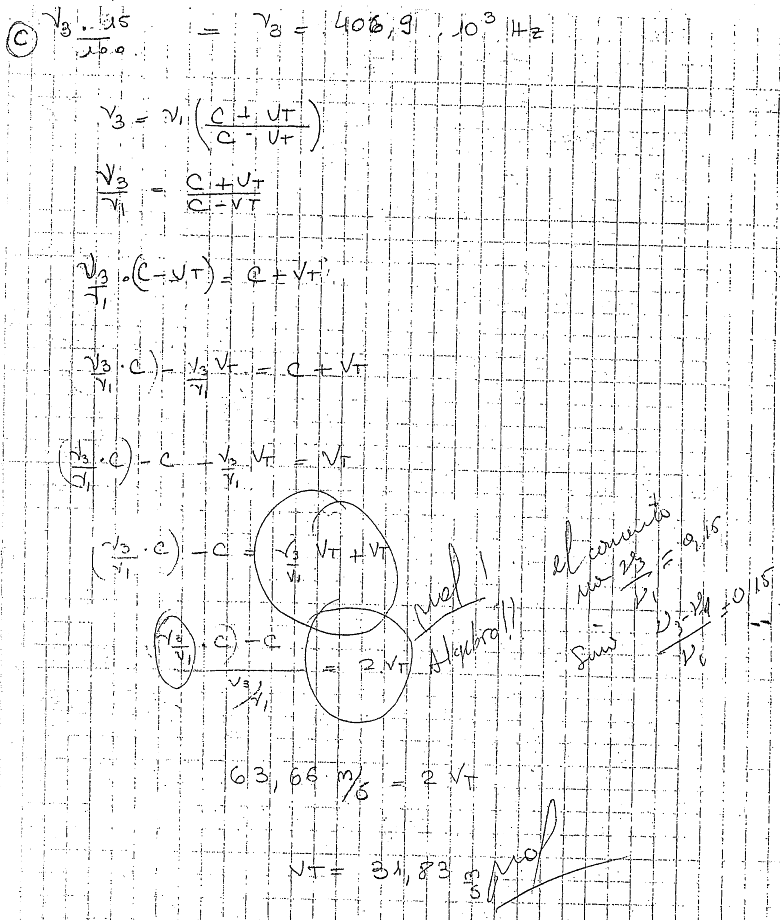 C
ν₃ · 15/100 = ν₃ = 406,9 · 10³ Hz
ν₃ = ν₁ (C + VT / C - VT)
ν₃/ν₁ = C + VT / C - VT
ν₃/ν₁ · (C - VT) = C + VT
ν₃/ν₁ · C) - ν₃/ν₁ VT = C + VT
(ν₃/ν₁ · C) - C - ν₃/ν₁ VT = VT
(ν₃/ν₁ · C) - C = ν₃/ν₁ VT + VT
(ν₃/ν₁ · C) - C / ν₃/ν₁ = 2 · VT
mal!
Algebra!!
el
no ν₃/ν₁ = 0,15
Sino ν₃ - ν₁ / ν₁ = 0,15
63,66 m/s = 2 VT
VT = 31,83 m/s
mal